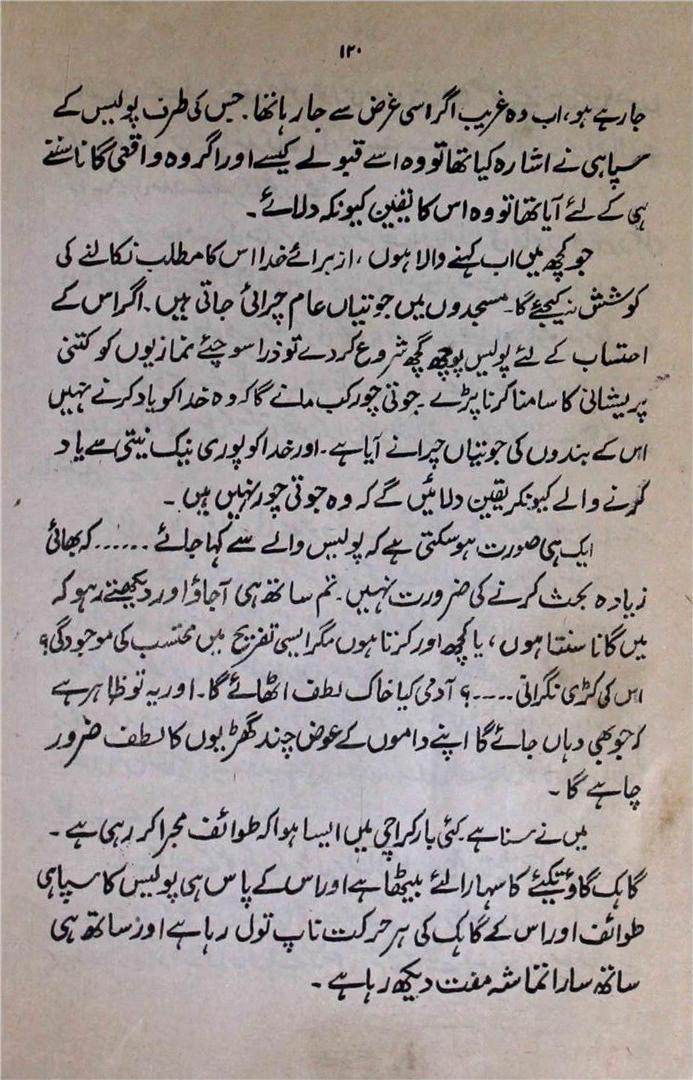 ۱۲۰
جا رہے ہو، اب وہ غریب اگر اسی غرض سے جا رہا تھا۔ جس کی طرف پولیس کے
سپاہی نے اشارہ کیا تھا تو وہ اسے قبولے کیسے اور اگر وہ واقعی گانا سننے
ہی کے لئے آیا تھا تو وہ اس کا یقین کیونکر دلائے۔
جو کچھ میں اب کہنے والا ہوں، از برائے خدا اس کا مطلب نکالنے کی
کوشش نہ کیجئے گا۔ مسجدوں میں جوتیاں عام چرائی جاتی ہیں۔ اگر اس کے
احتساب کے لئے پولیس پوچھ گچھ شروع کر دے تو ذرا سوچئے نمازیوں کو کتنی
پریشانی کا سامنا کرنا پڑے۔ جوتی چور کب مانے گا کہ وہ خدا کو یاد کرنے نہیں
اس کے بندوں کی جوتیاں چرانے آیا ہے۔ اور خدا کو پوری نیک نیتی سے یاد
کرنے والے کیونکر یقین دلائیں گے کہ وہ جوتی چور نہیں ہیں۔
ایک ہی صورت ہو سکتی ہے کہ پولیس والے سے کہا جائے ...... کہ بھائی
زیادہ بحث کرنے کی ضرورت نہیں۔ تم ساتھ ہی آجاؤ اور دیکھتے رہو کہ
میں گانا سنتا ہوں، یا کچھ اور کرتا ہوں مگر ایسی تفریح میں محتسب کی موجودگی؟
اس کی کڑی نگرانی ....؟ آدمی کیا خاک لطف اٹھائے گا۔ اور یہ تو ظاہر ہے
کہ جو بھی وہاں جائے گا اپنے داموں کے عوض چند گھڑیوں کا لطف ضرور
چاہے گا۔
میں نے سنا ہے۔ کئی بار کراچی میں ایسا ہوا کہ طوائف مجرا کر رہی ہے۔
گاہک گاؤ تکیئے کا سہارا لئے بیٹھا ہے اور اس کے پاس ہی پولیس کا سپاہی
طوائف اور اس کے گاہک کی ہر حرکت ناپ تول رہا ہے اور ساتھ ہی
ساتھ سارا تماشہ مفت دیکھ رہا ہے۔